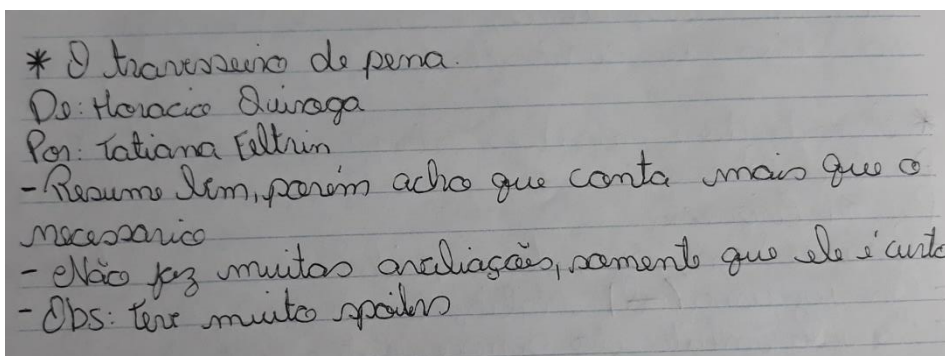 * O travesseiro de pena.
De: Horacio Quiroga
Por: Tatiana Feltrin
- Resume bem, porém acho que conta mais que o
necessario
- Não faz muitas avaliações, somente que ele é curto
- Obs: teve muito spoilers